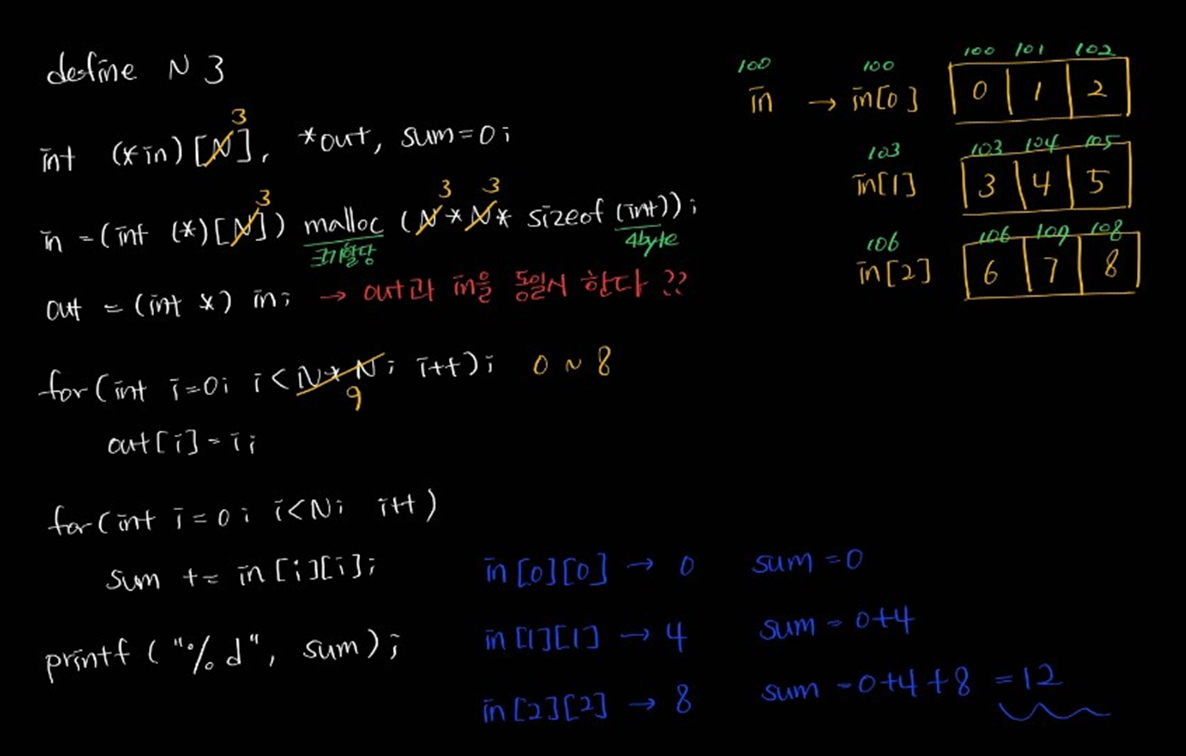 define N 3
100 100 100 101 102
in → in[0] 0 1 2
3
int (*in)[N], *out, sum=0;
103 103 104 105
in[1] 3 4 5
3 3 3
in =(int (*)[N]) malloc (N*N* sizeof (int));
크기할당 4byte
106 106 109 108
in[2] 6 7 8
out = (int *) in; → out과 in을 동일시 한다 ??
for(int i=0; i<N*N; i++); 0 ~ 8
9
out[i]=i;
for(int i=0; i<N; i++)
sum += in[i][i]; in[0][0] → 0 sum=0
in[1][1] → 4 sum=0+4
printf ("%d", sum);
in[2][2] → 8 sum=0+4+8 =12